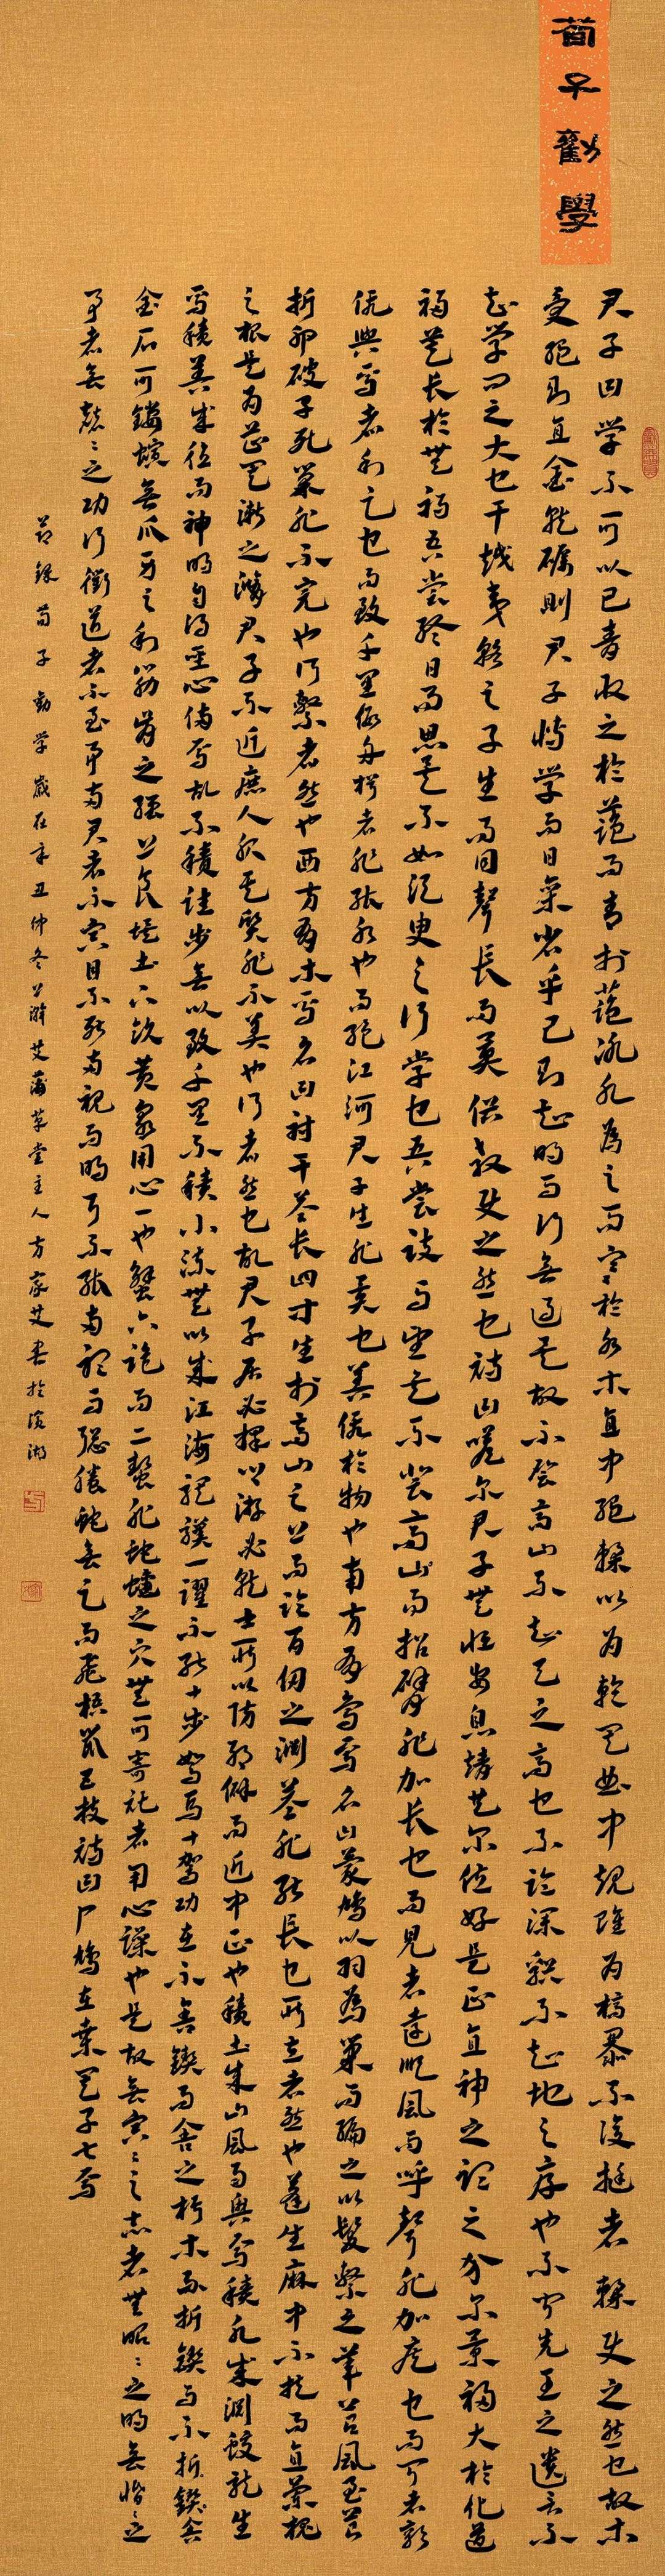 荀子勸學
君子曰学不可以已青取之於蓝而青於蓝冰水為之而寒於水木直中绳鞣以为輪其曲中规雖为槁暴不復挺者鞣使之然也故木
受绳则直金就砺則君子博学而日参省乎己则知明而行無過矣故不登高山不知天之高也不临深谿不知地之厚也不闻先王之遗言不
知学问之大也干越夷貉之子生而同聲長而異俗教使之然也诗曰嗟尔君子無恒安息靖共尔位好是正直神之聽之介尔景福大於化道
福莫長於無禍吾尝终日而思矣不如须臾之所学也吾尝跂而望矣不登高山而招臂非加長也而見者遠顺風而呼聲非加疾也而闻者彰
假輿馬者利足也而致千里假舟楫者非能水也而绝江河君子生非異也善假於物也南方有鳥焉名曰蒙鳩以羽為巢而编之以髮繫之葦苕風至苕
折卵破子死巢非不完也所繫者然也西方有木焉名曰射干茎長四寸生於高山之上而临百仞之渊茎非能長也所立者然也蓬生麻中不扶而直蘭槐
之根是为芷其漸之滫君子不近庶人服其質非不美也所者然也故君子居必擇鄉游必就士所以防邪僻而近中正也積土成山風雨興焉積水成渊蛟龙生
焉積善成德而神明自得聖心備焉故不積跬步無以致千里不積小流無以成江海騏驥一躍不能十步駑馬十駕功在不舍鍥而舍之朽木不折鍥而不折鍥舍
金石可鏤螾無爪牙之利筋骨之强上食埃土下飲黄泉用心一也蟹六跪而二螯非蛇蟺之穴無可寄託者用心躁也是故無冥冥之志者無昭昭之明無惛之
事者無赫赫之功行衢道者不至事兩君者不容目不能兩視而明耳不能兩聽而聰螣蛇無足而飛梧鼠五技诗曰尸鳩在桑其子七兮
节录荀子勸学岁在辛丑仲冬上澣艾蒲草堂主人方家艾书於滨湖